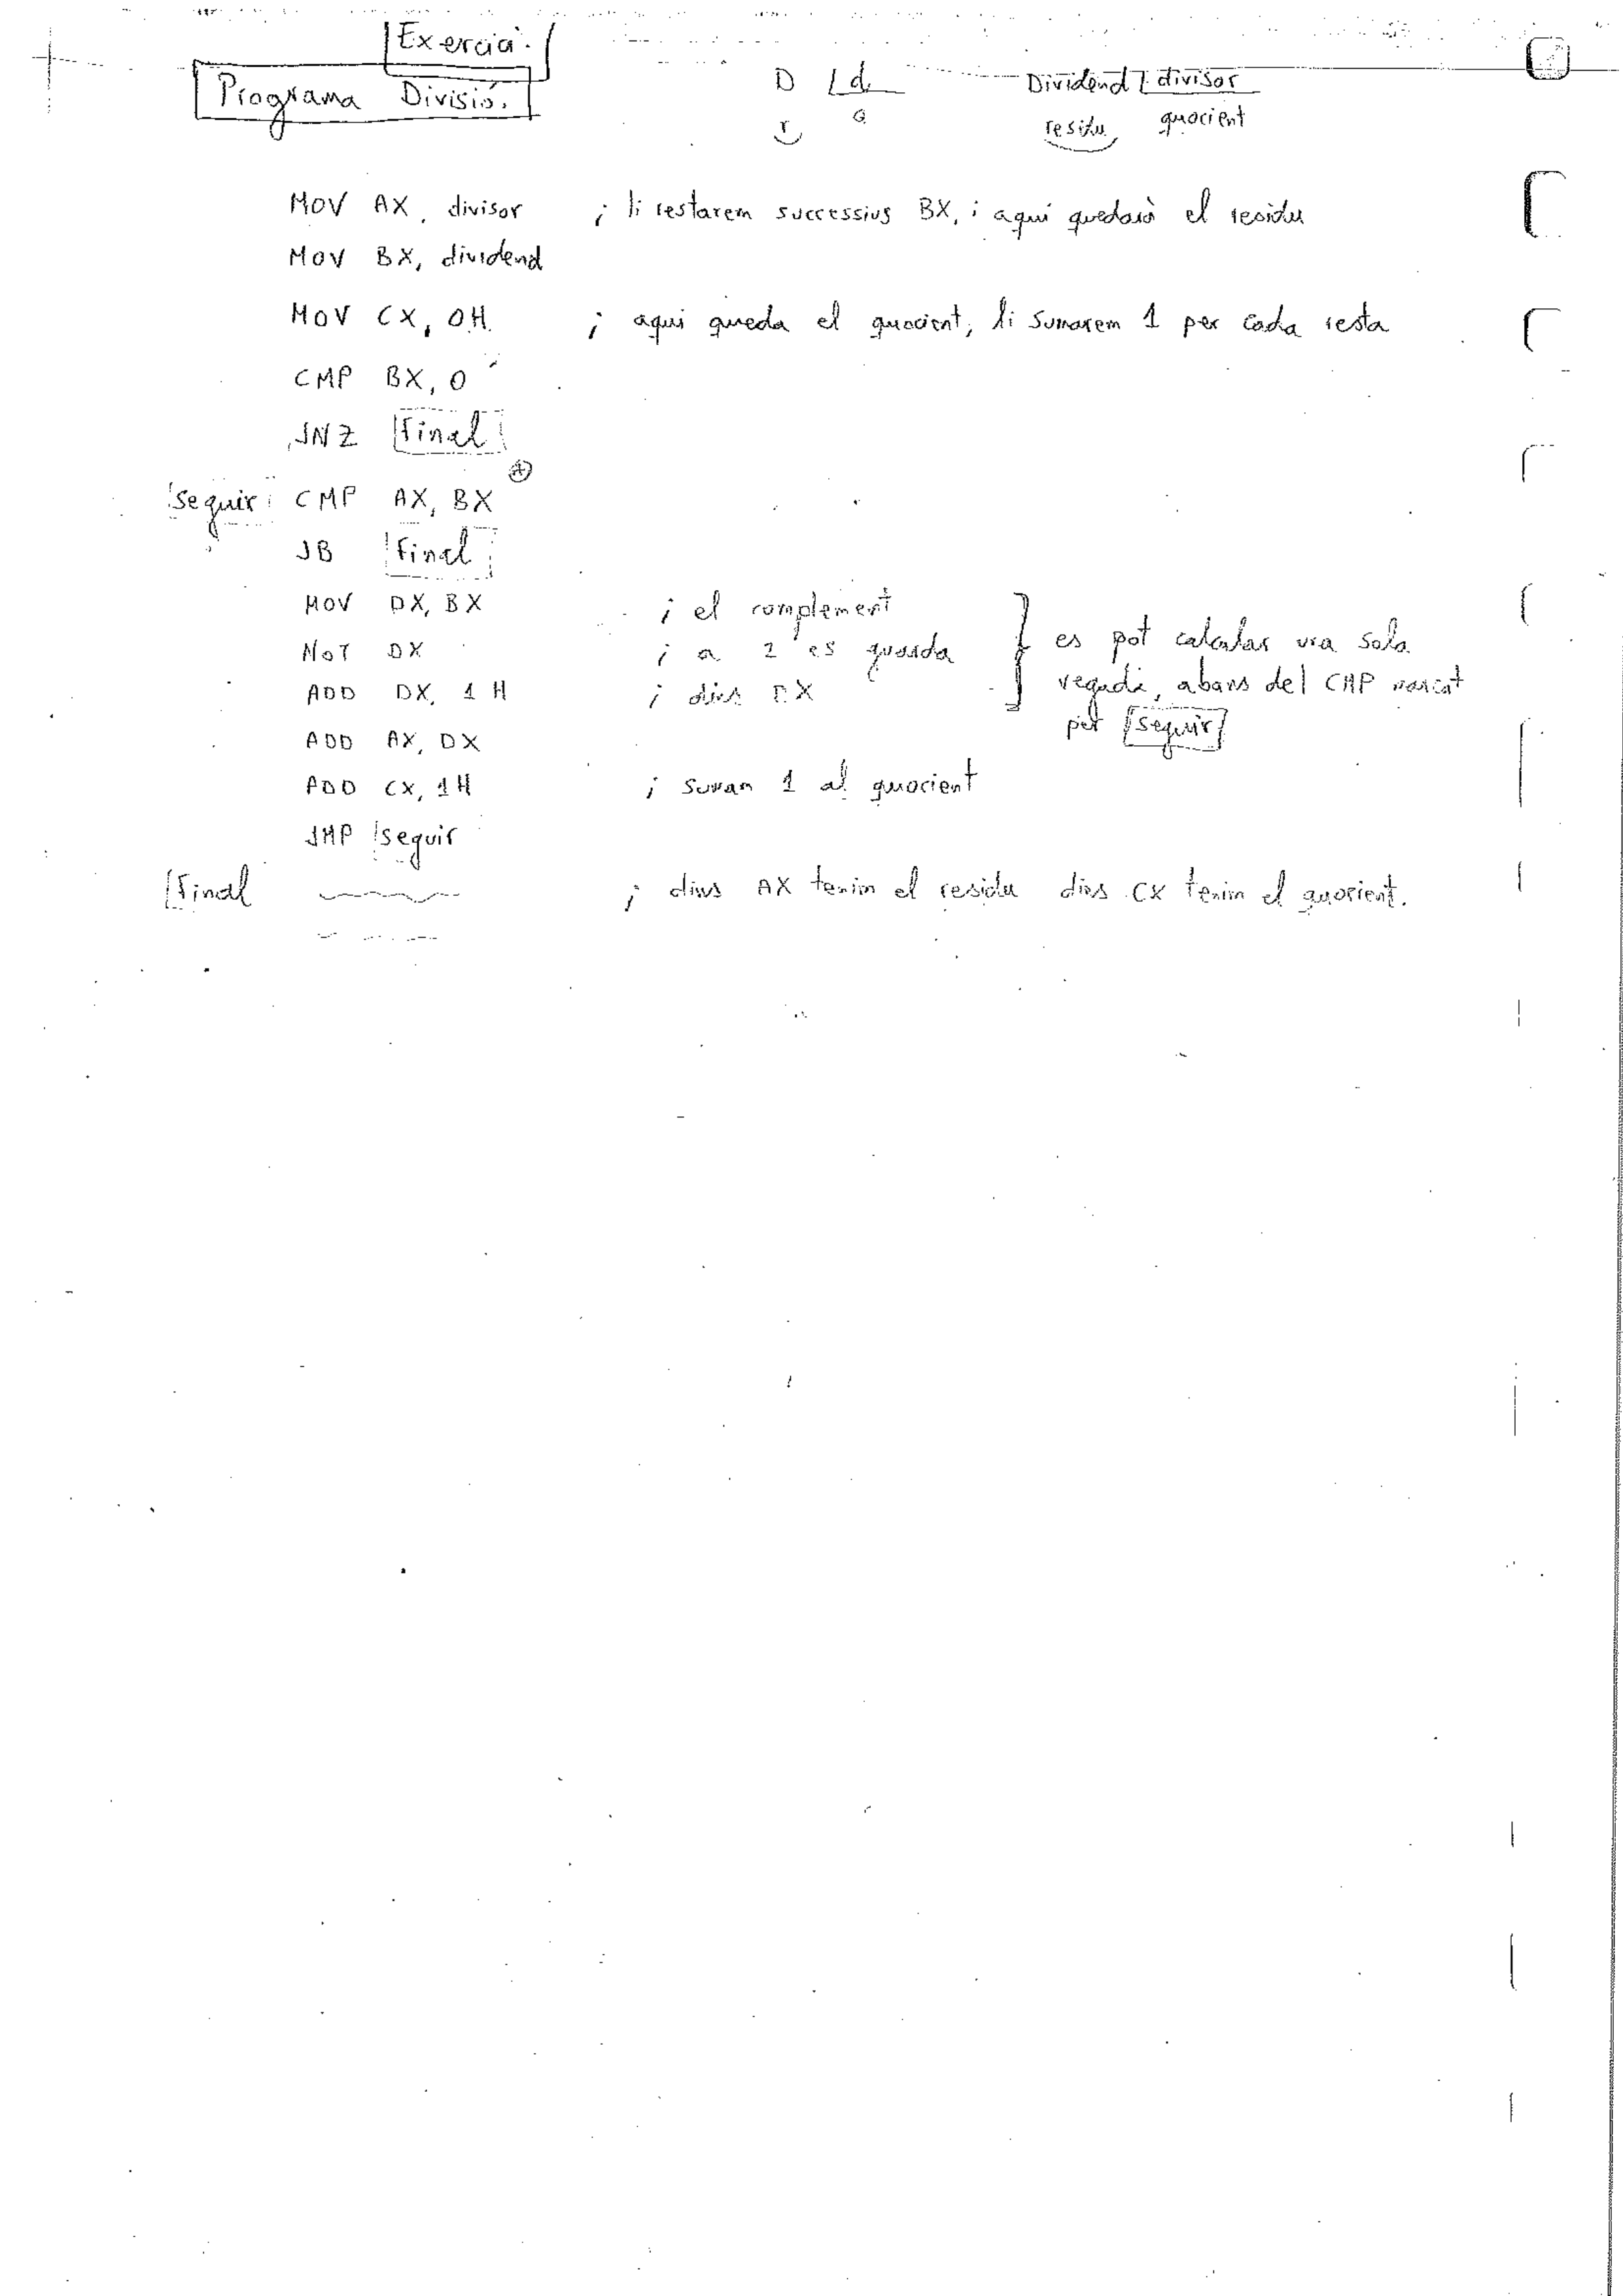 Exercici.
Programa Divisió.
D d
r q
Dividend divisor
residu quocient
MOV AX, divisor ; li restarem successius BX, i aquí quedarà el residu
MOV BX, dividend
MOV CX, 0H. ; aqui queda el quocient, li sumarem 1 per cada resta
CMP BX, 0
JNZ Final
Seguir: CMP AX, BX
JB Final
MOV DX, BX ; el complement
NOT DX ; a 2 es guarda
ADD DX, 1H ; dins DX
es pot calcular una sola
vegada, abans del CMP marcat
per seguir
ADD AX, DX
ADD CX, 1H ; sumam 1 al quocient
JMP seguir
Final ; dins AX tenim el residu dins CX tenim el quocient.